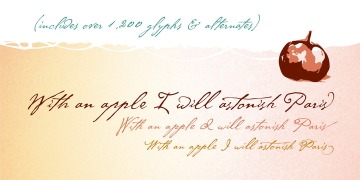 (includes over 1,200 glyphs & alternates)
With an apple I will astonish Paris
With an apple I will astonish Paris
With an apple I will astonish Paris